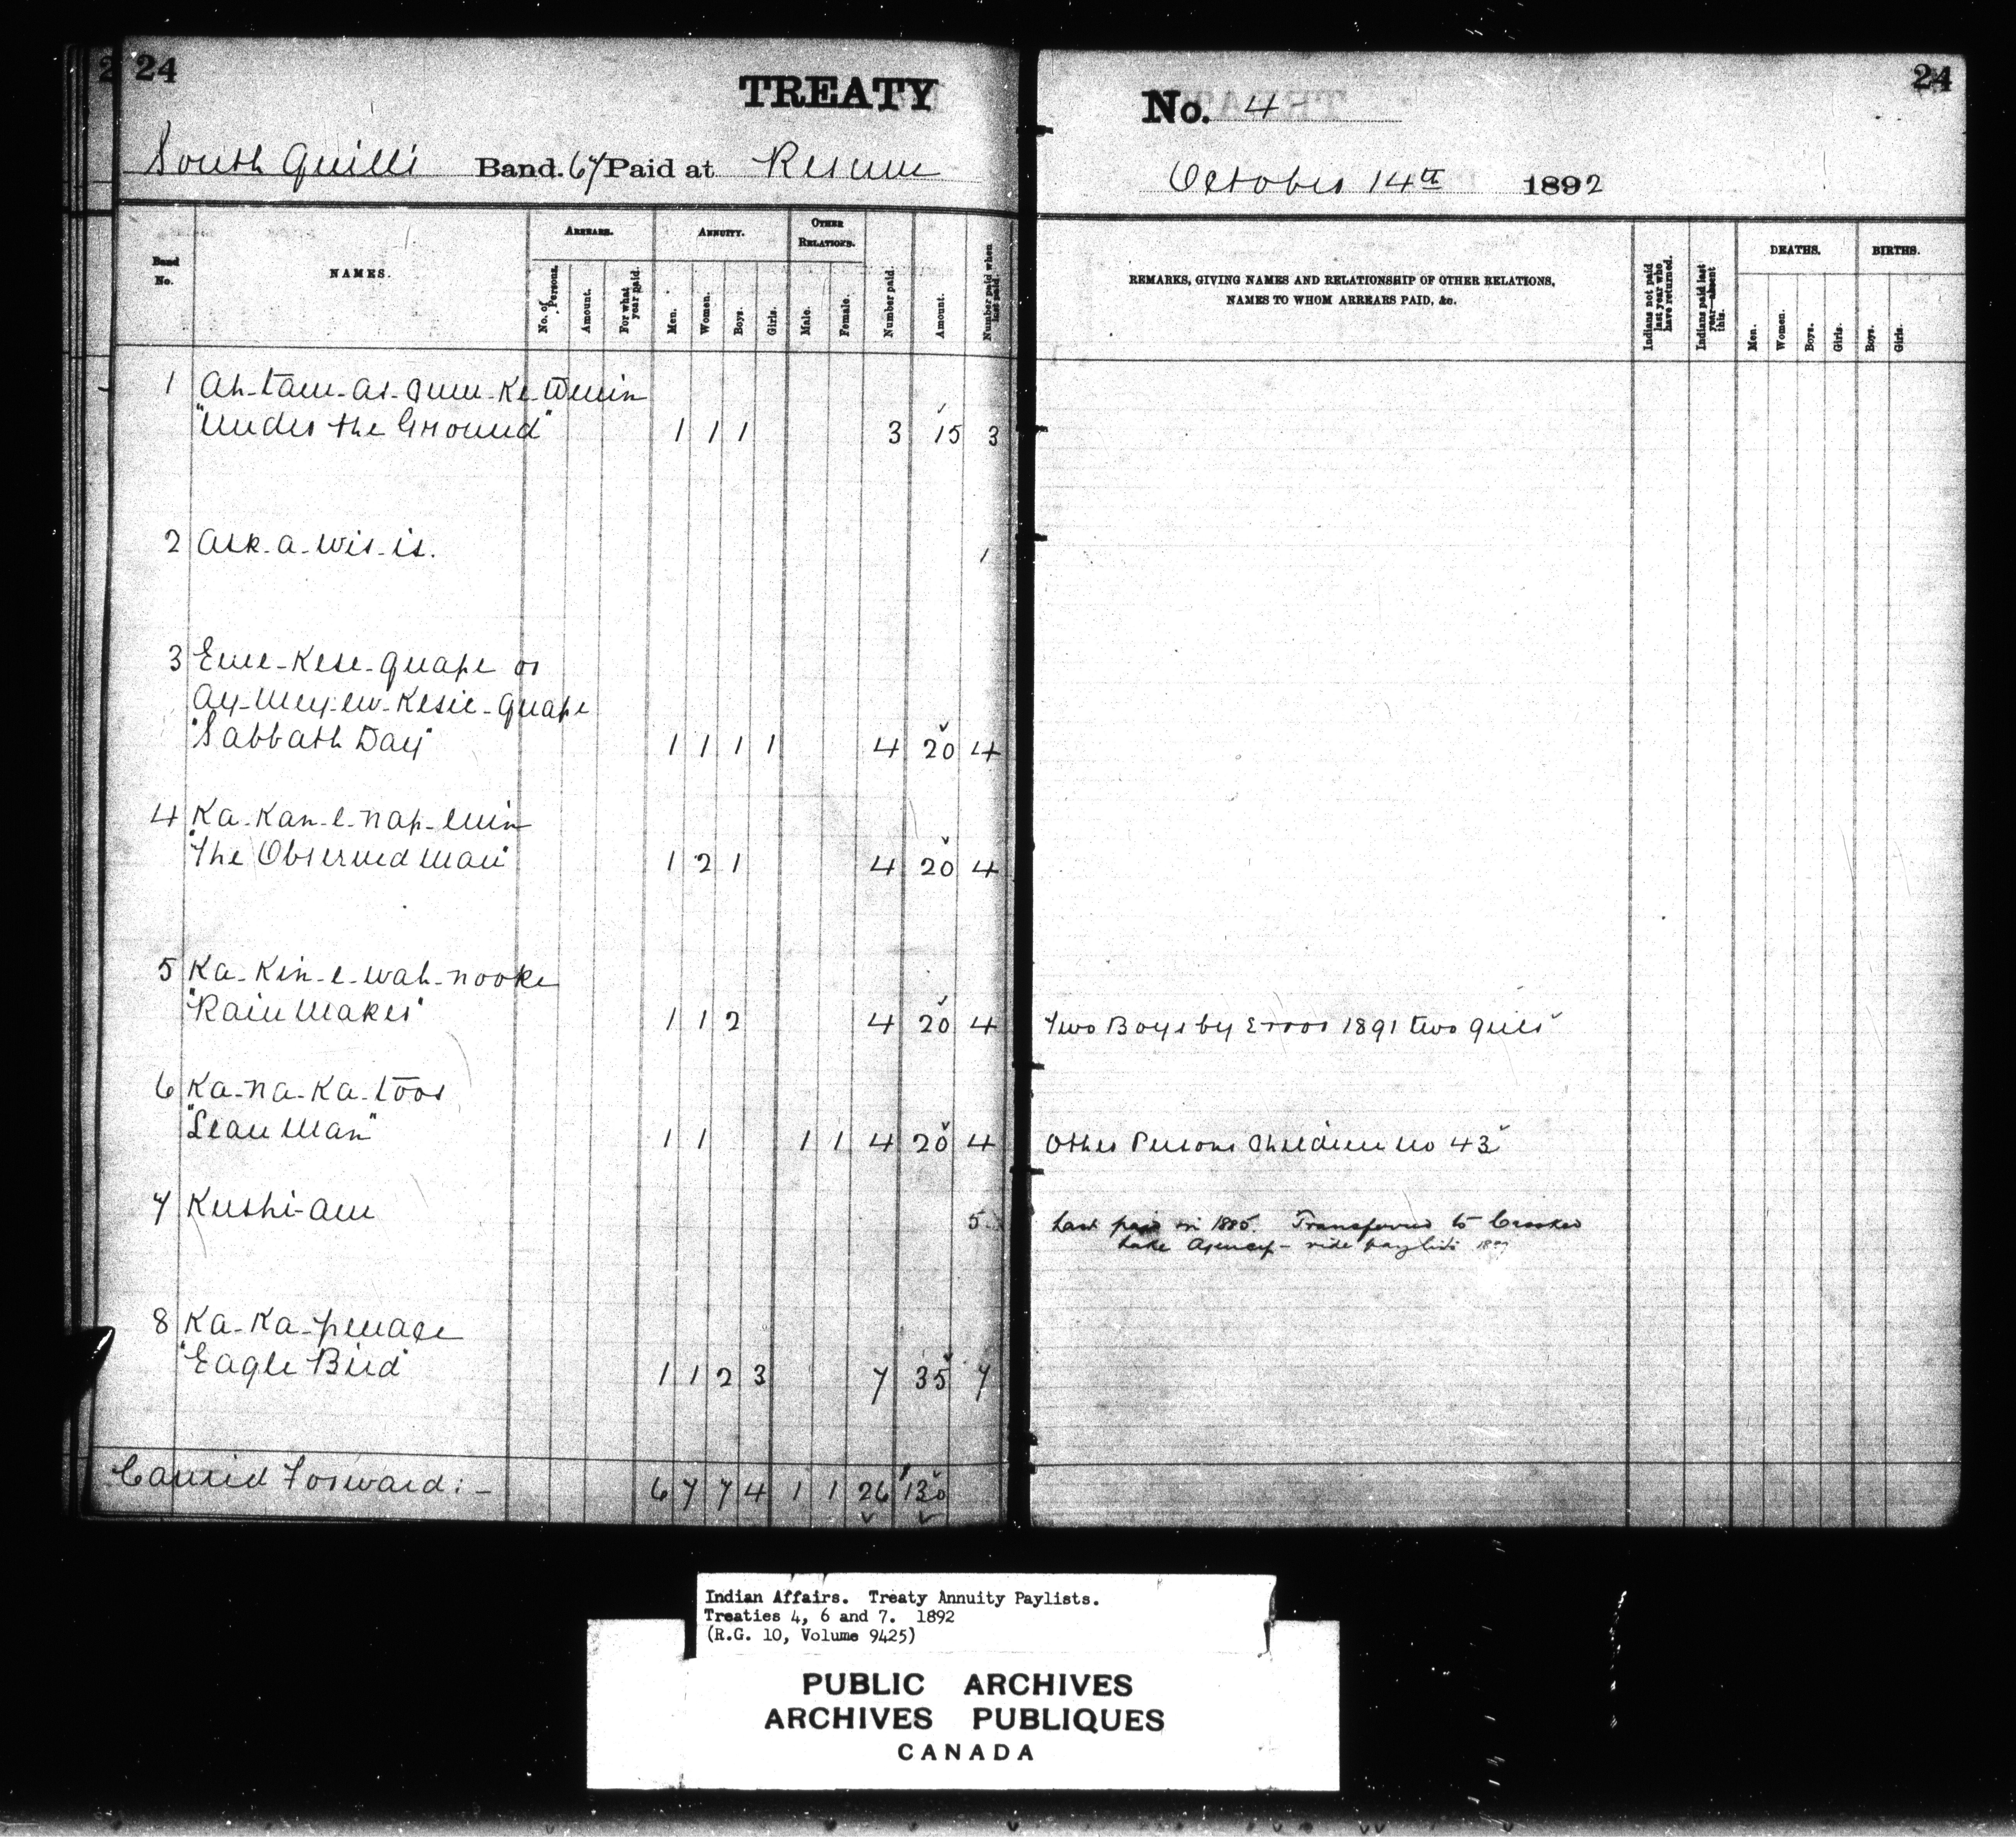 24
TREATY
South Quill Band. 67 Paid at Reserve
Band No.
NAMES.
ARREARS.
No. of Persons.
Amount.
For what year paid.
ANNUITY.
Men.
Women.
Boys.
Girls.
OTHER RELATIONS.
Male.
Female.
Number paid.
Amount.
Number paid when last paid.
1 Ah-tam-as-Kum-Ke-Wenin
"Under the Ground" 1 1 1 3 15 3
2 Ask-a-wis-is. 1
3 Eme-Kese-quape or
Ay-Mey-ew-Kesie-quape
"Sabbath Day" 1 1 1 1 4 20 4
4 Ka-Kan-e-nap-emin
"The Observed Man" 1 2 1 4 20 4
5 Ka-Kin-e-wah-nooke
"Rain Maker" 1 1 2 4 20 4
6 Ka-na-Ka-toos
"Lean Man" 1 1 1 1 4 20 4
7 Kushi-am 5
8 Ka-Ka-penace
"Eagle Bird" 1 1 2 3 7 35 7
Carried Forward:- 6 7 7 4 1 1 26 130
24
No. 4
October 14th 1892
REMARKS, GIVING NAMES AND RELATIONSHIP OF OTHER RELATIONS,
NAMES TO WHOM ARREARS PAID, &c.
Indians not paid last year who have returned.
Indians paid last year—absent this.
DEATHS.
Men.
Women.
Boys.
Girls.
BIRTHS.
Boys.
Girls.
Two Boys by Error 1891 two girls
Other Persons Children No 43
Last paid in 1885. Transferred to Crooked
Lake Agency - vide paylists
Indian Affairs. Treaty Annuity Paylists.
Treaties 4, 6 and 7. 1892
(R.G. 10, Volume 9425)
PUBLIC ARCHIVES
ARCHIVES PUBLIQUES
CANADA